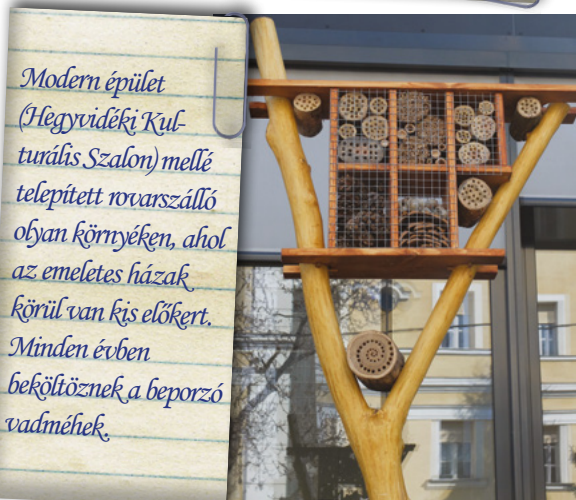 Modern épület
(Hegyvidéki Kul-
turális Szalon) mellé
telepített rovarszálló
olyan környéken, ahol
az emeletes házak
körül van kis előkert.
Minden évben
beköltöznek a beporzó
vadméhek.